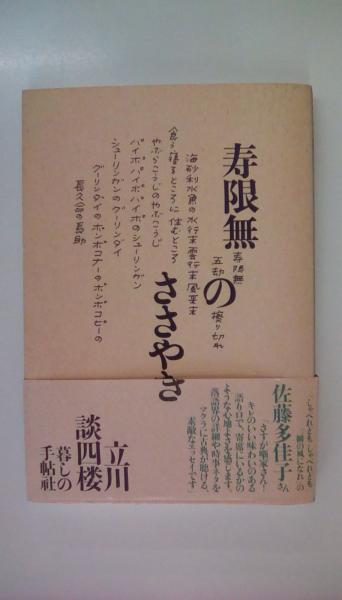 寿限無の
ささやき
寿限無
五劫の擦り切れ
海砂利水魚の水行末雲行末風来末
食う寝るところに住むところ
やぶらこうじのやぶこうじ
パイポパイポパイポのシューリンガン
シューリンガンのグーリンダイ
グーリンダイのポンポコナーのポンポコピーの
長久命の長助
「しゃべれども しゃべれども」
「一瞬の風になれ」の
佐藤多佳子さん
「さすが噺家さん！
キレのいい味わいのある
語り口で、寄席にいるかの
ような心地よさを感じます。
落語界の詳細や時事ネタを
マクラに古典が聴ける、
素敵なエッセイです」
立川
談四楼
暮しの
手帖社